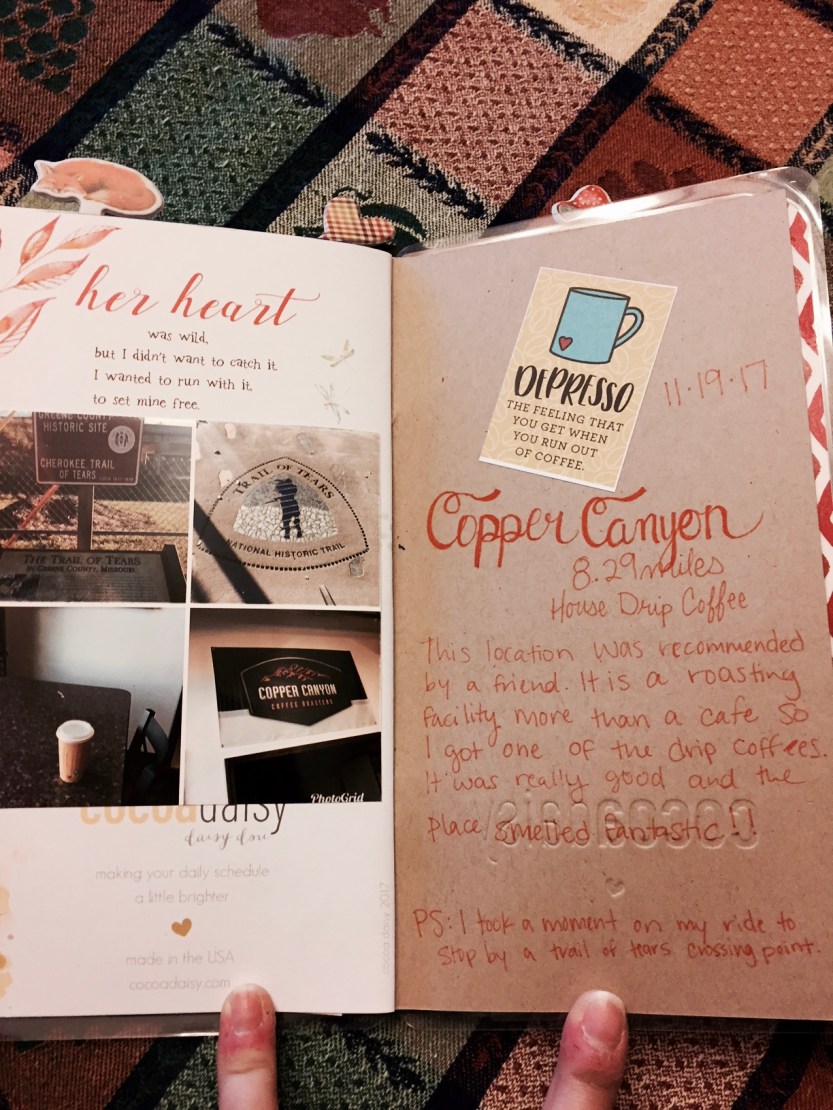 her heart
was wild,
but I didn't want to catch it.
I wanted to run with it,
to set mine free.
GREENE COUNTY
HISTORIC SITE
CHEROKEE TRAIL
OF TEARS
THE TRAIL OF TEARS
IN GREENE COUNTY, MISSOURI
TRAIL OF TEARS
NATIONAL HISTORIC TRAIL
COPPER CANYON
COFFEE ROASTERS
PhotoGrid
cocoadaisy
daisy dori
making your daily schedule
a little brighter
made in the USA
cocoadaisy.com
cocoa daisy 2017
DEPRESSO
THE FEELING THAT
YOU GET WHEN
YOU RUN OUT
OF COFFEE.
11·19·17
Copper Canyon
8.29 miles
House Drip Coffee
This location was recommended
by a friend. It is a roasting
facility more than a cafe so
I got one of the drip coffees.
It was really good and the
place smelled fantastic!!
PS: I took a moment on my ride to
stop by a trail of tears crossing point.